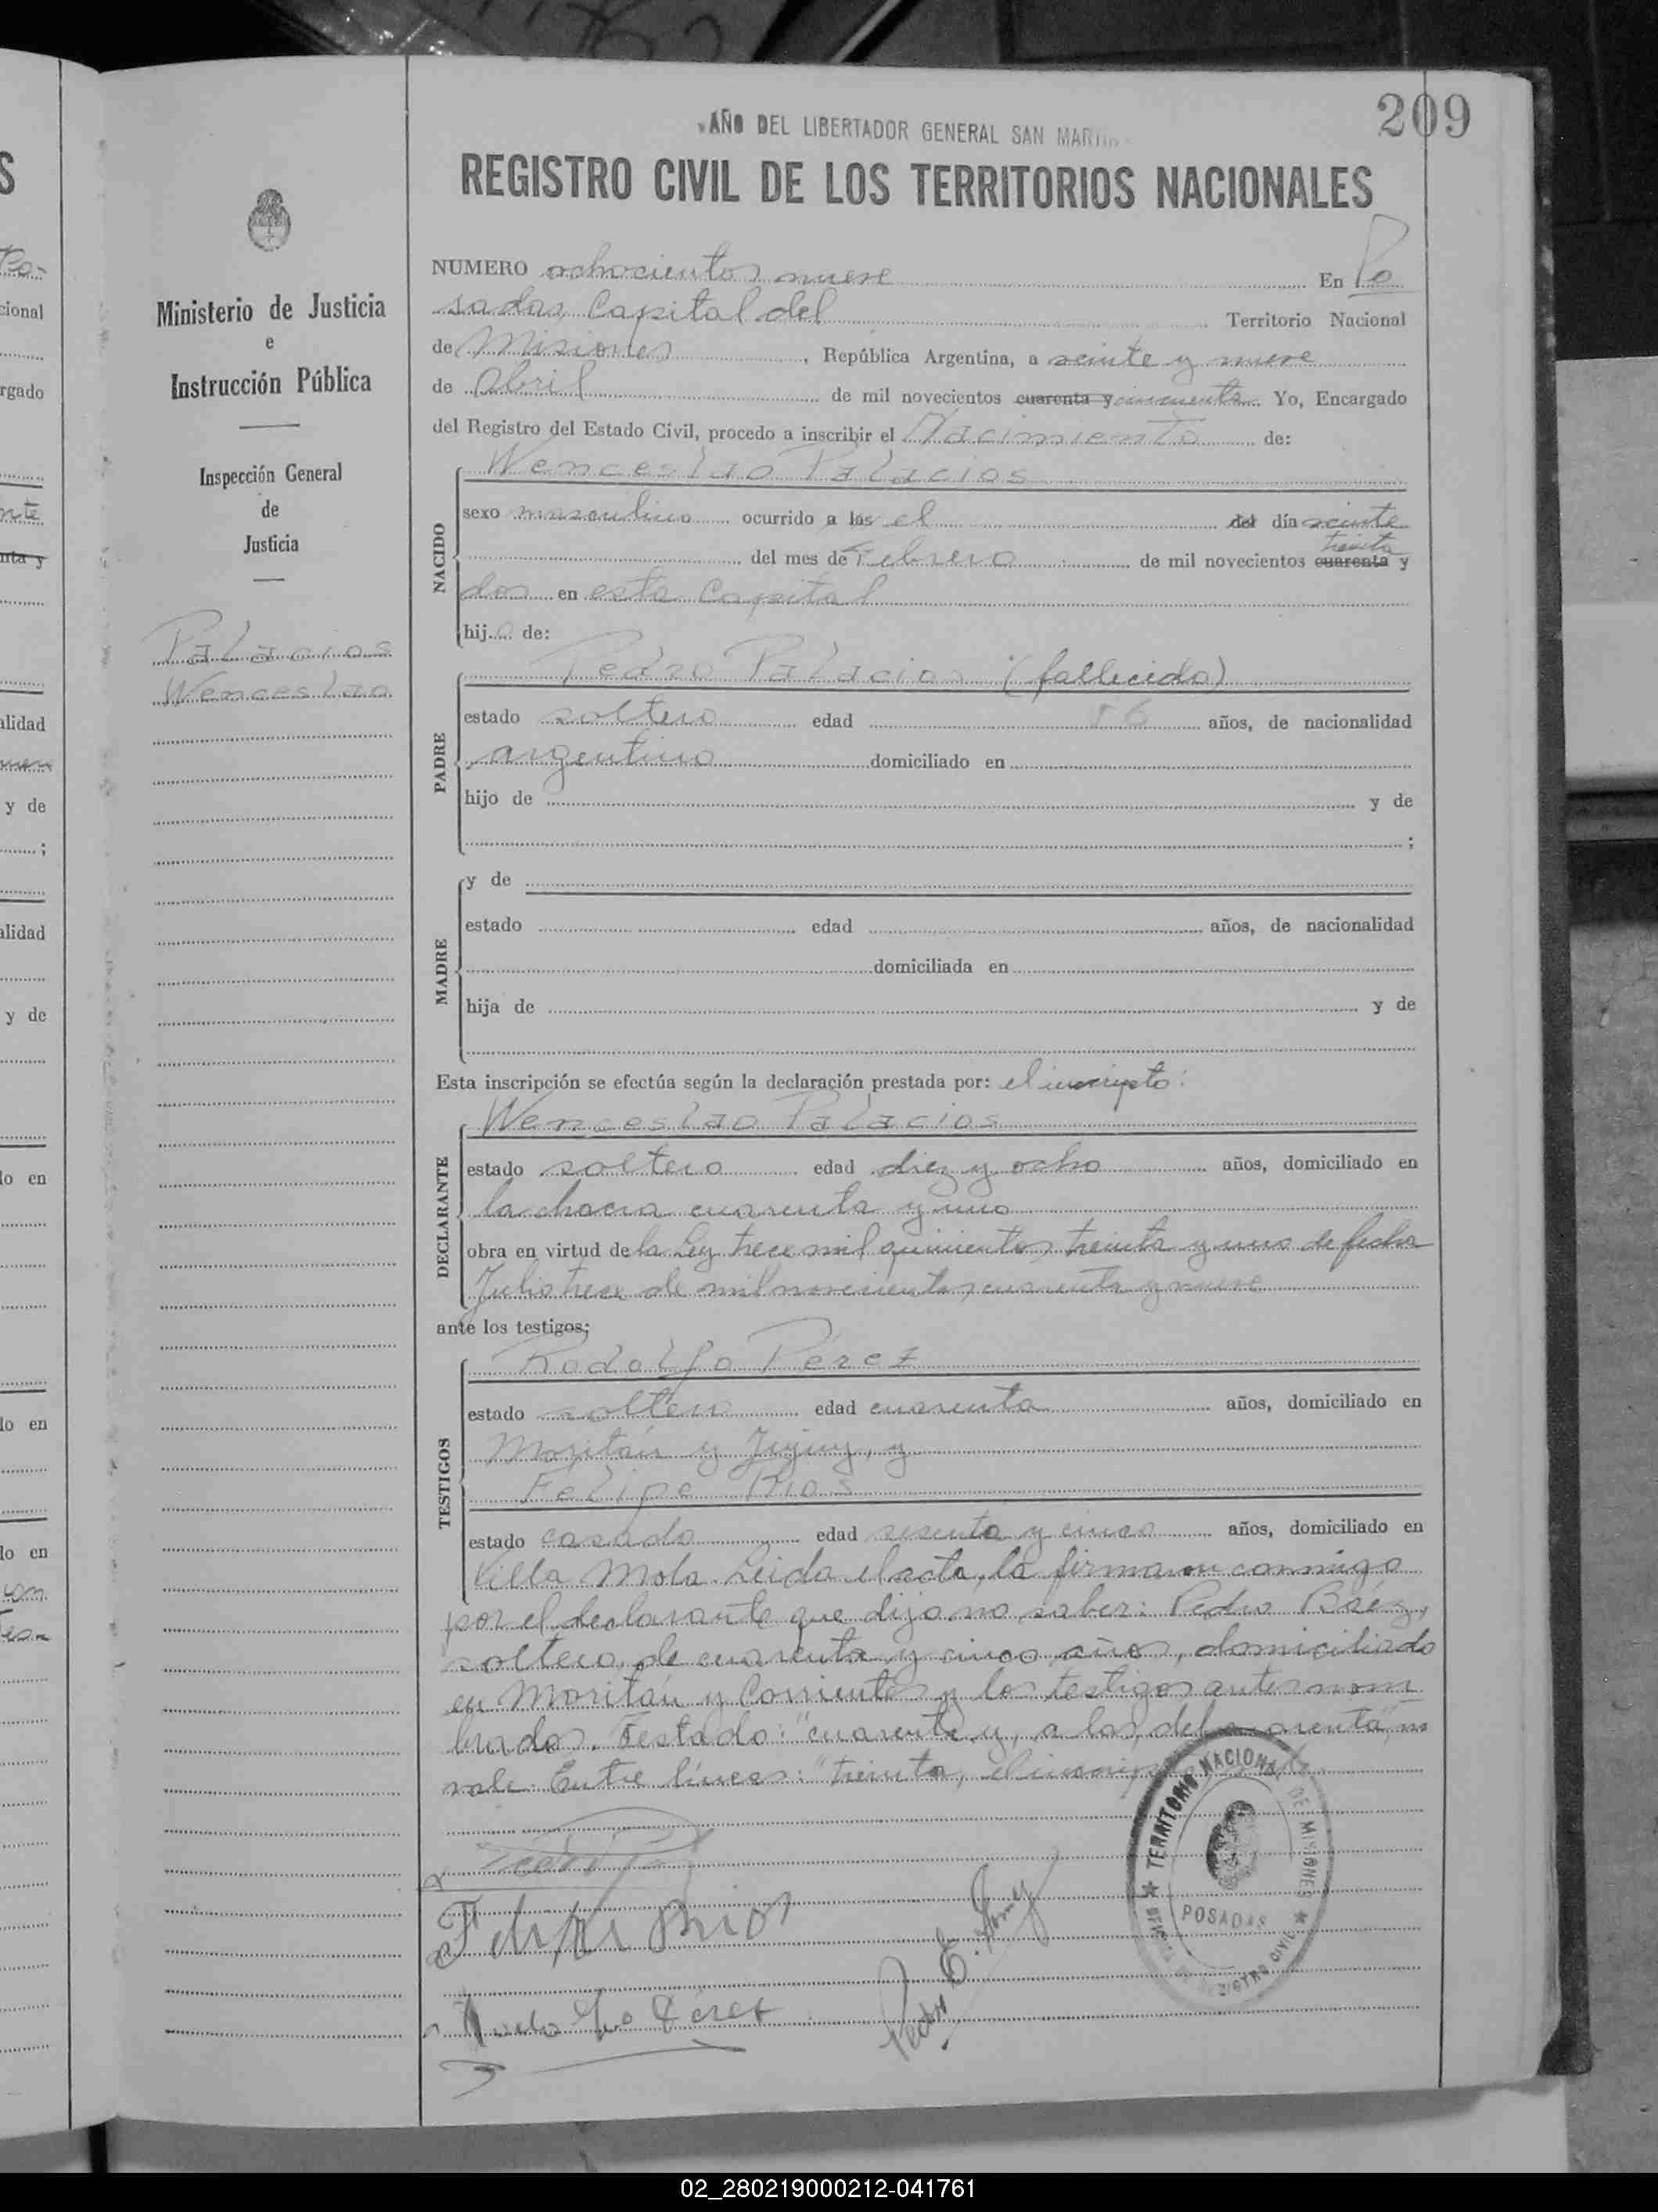 209
AÑO DEL LIBERTADOR GENERAL SAN MARTIN
REGISTRO CIVIL DE LOS TERRITORIOS NACIONALES
Ministerio de Justicia
e
Instrucción Pública
Inspección General
de
Justicia
Palacios
Wenceslao
NUMERO ochocientos nueve En Po
sadas Capital del Territorio Nacional
de Misiones, República Argentina, a veinte y nueve
de Abril de mil novecientos cuarenta y cincuenta. Yo, Encargado
del Registro del Estado Civil, procedo a inscribir el Nacimiento de:
NACIDO
Wenceslao Palacios
sexo masculino ocurrido a las el del día veinte
treinta
del mes de Febrero de mil novecientos cuarenta y
dos en esta Capital
hijo de:
PADRE
Pedro Palacios (fallecido)
estado soltero edad años, de nacionalidad
argentino domiciliado en
hijo de y de
;
MADRE
y de
estado edad años, de nacionalidad
domiciliada en
hija de y de
Esta inscripción se efectúa según la declaración prestada por: el inscripto:
DECLARANTE
Wenceslao Palacios
estado soltero edad diez y ocho años, domiciliado en
la chacra cuarenta y uno
obra en virtud de la Ley trece mil quinientos treinta y uno de fecha
Julio trece de mil novecientos cuarenta y nueve
ante los testigos:
TESTIGOS
Rodolfo Pérez
estado soltero edad cuarenta años, domiciliado en
Moritán y Jujuy, y
Felipe Rios
estado casado edad sesenta y cinco años, domiciliado en
Villa Mola. Leida el acta, la firmaron conmigo
por el declarante que dijo no saber: Pedro Báez,
soltero, de cuarenta y cinco años, domiciliado
en Moritán y Corrientes y los testigos antes nom
brados. Testado: "cuarenta y, a las, del, cuarenta", no
vale. Entre líneas: "treinta, el inscripto
TERRITORIO NACIONAL DE MISIONES
POSADAS
REGISTRO CIVIL
Felipe Rios
Rodolfo Perez
Pedro E.
02_280219000212-041761